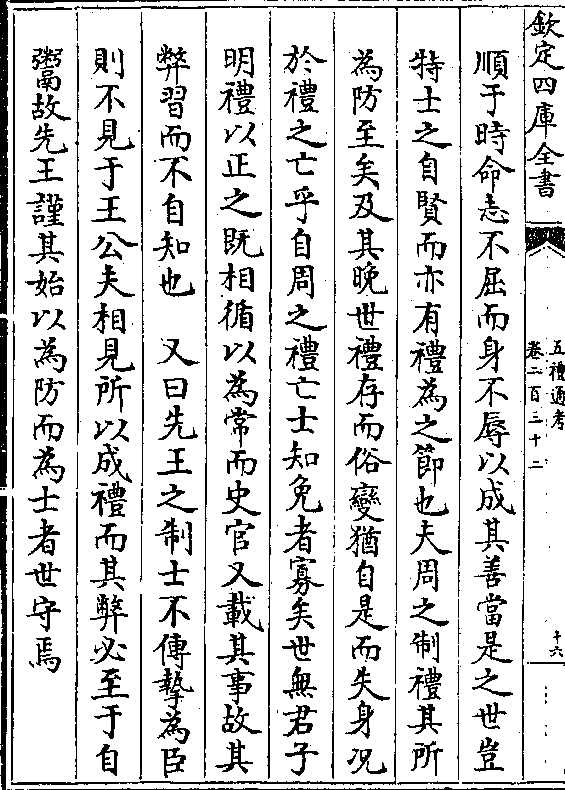 欽定四庫全書
五禮通考
卷二百三十二
十六
順于時命志不屈而身不辱以成其善當是之世豈
特士之自賢而亦有禮為之節也夫周之制禮其所
為防至矣及其晚世禮存而俗變猶自是而失身况
於禮之亡乎自周之禮亡士知免者寡矣世無君子
明禮以正之既相循以為常而史官又載其事故其
弊習而不自知也　又曰先王之制士不傳摯為臣
則不見于王公夫相見所以成禮而其弊必至于自
鬻故先王謹其始以為防而為士者世守焉